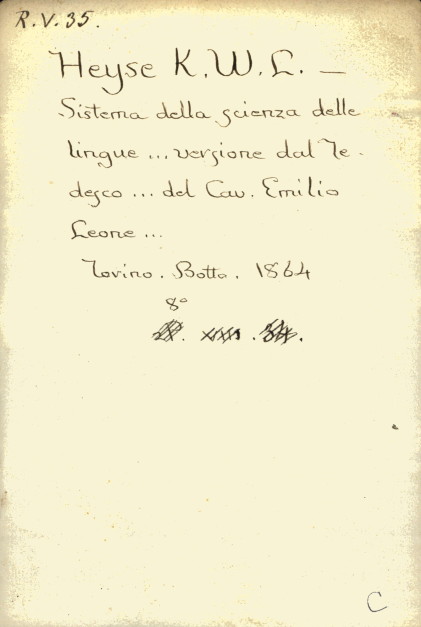 R.V.35.
Heyse K.W.L. —
Sistema della scienza delle
lingue ... versione dal Te-
desco ... del Cav. Emilio
Leone ...
Torino. Botta. 1864
8°
C